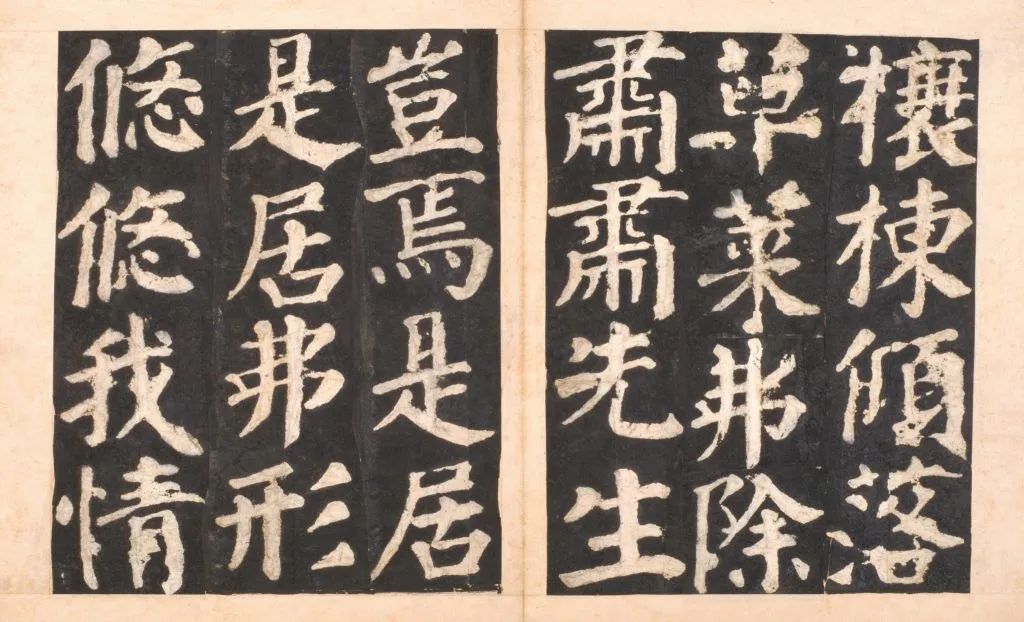 榱棟傾落
草萊弗除
肅肅先生
豈焉是居
是居弗形
悠悠我情